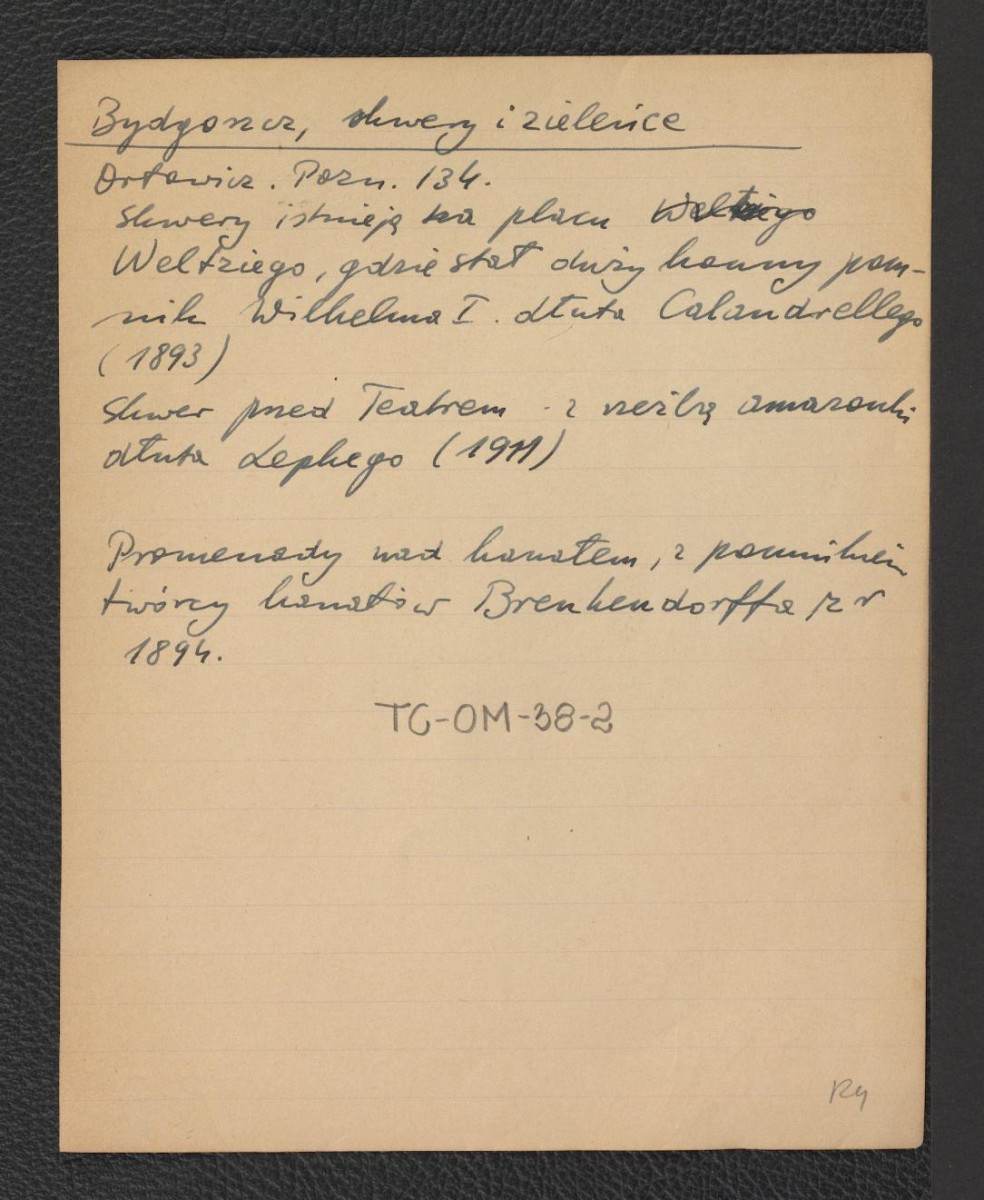 Bydgoszcz, skwery i zieleńce
Orłowicz. Pozn. 134.
Skwery istnieją na placu
Wełtziego, gdzie stał duży konny pom-
nik Wilhelma I. dłuta Calandrellego
(1893)
Skwer przed Teatrem - z rzeźbą amazonki
dłuta Lepkego (1911)
Promenady nad kanałem, z pomnikiem
twórcy kanałów Brenkendorffa, z r
1894.
TC-OM-38-2